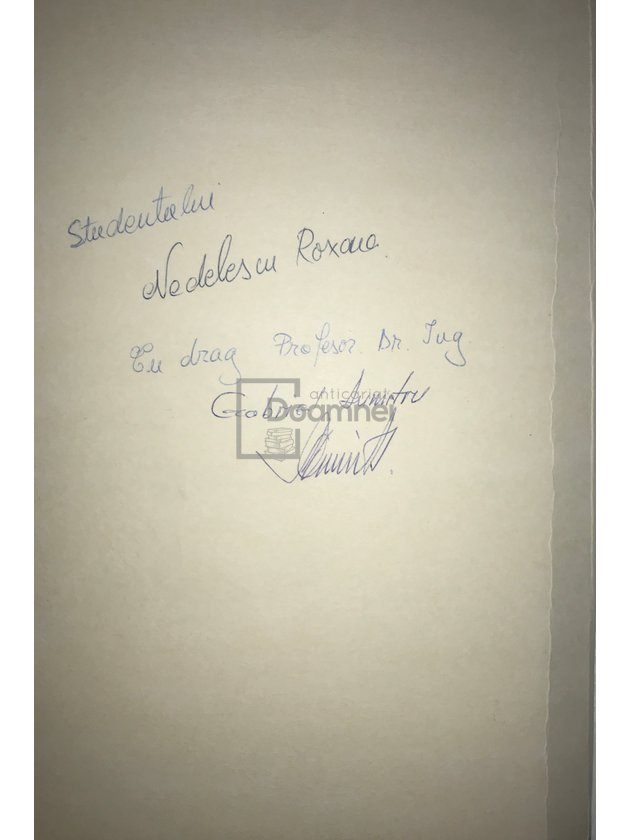 Studentului
Nedelescu Roxana
Cu drag Profesor. Dr. Ing
Gabriel Dumitru
anticariat
Doamnei